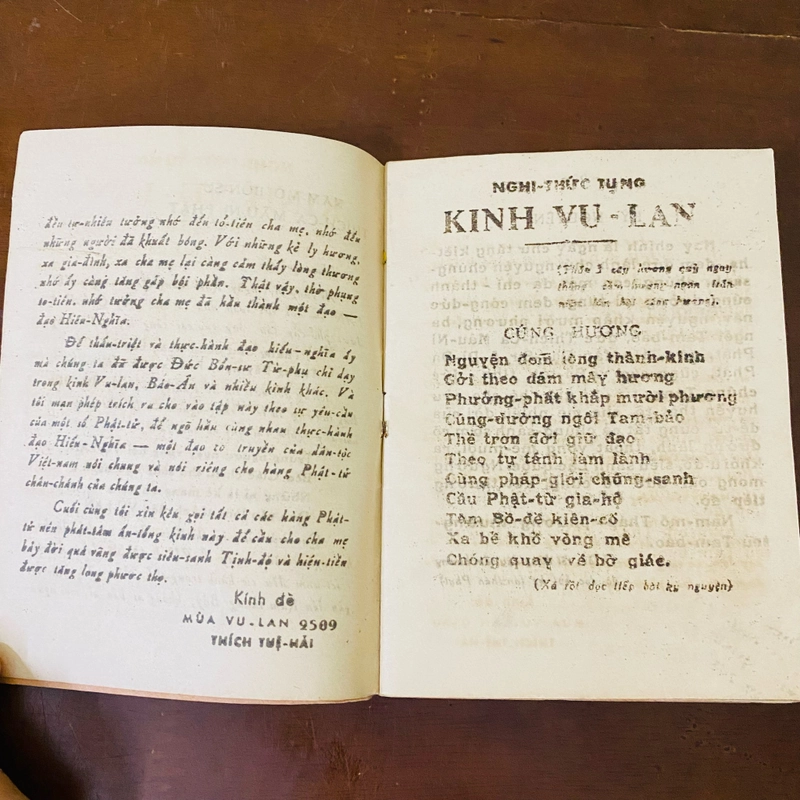 đều tự-nhiên tưởng nhớ đến tổ-tiên cha mẹ, nhớ đến
những người đã khuất bóng. Với những kẻ ly hương,
xa gia-đình, xa cha mẹ lại càng cảm thấy lòng thương
nhớ ấy càng tăng gấp bội phần. Thật vậy, thờ phụng
tổ-tiên, nhớ tưởng cha mẹ đã hầu thành một đạo —
đạo Hiếu-Nghĩa.
Để thấu-triệt và thực-hành đạo hiếu-nghĩa ấy
mà chúng ta đã được Đức Bổn-sư Từ-phụ chỉ dạy
trong kinh Vu-lan, Báo-Ân và nhiều kinh khác. Và
tôi mạn phép trích ra cho vào tập này theo sự yêu-cầu
của một số Phật-tử, để ngõ hầu cùng nhau thực-hành
đạo Hiếu-Nghĩa — một đạo cổ truyền của dân-tộc
Việt-nam nói chung và nói riêng cho hàng Phật-tử
chân-chánh của chúng ta.
Cuối cùng tôi xin kêu gọi tất cả các hàng Phật-
tử nên phát-tâm ấn-tống kinh này để cầu cho cha mẹ
bảy đời quá vãng được siêu-sanh Tịnh-độ và hiện-tiền
được tăng long phước thọ.
Kính đề
MÙA VU-LAN 2509
THÍCH TUỆ-HẢI
NGHI-THỨC TỤNG
KINH VU-LAN
(Thắp 3 cây hương quỳ ngay
thẳng cầm hương ngang trán
niệm lớn bài cúng hương).
CÚNG HƯƠNG
Nguyện đem lòng thành-kính
Gởi theo đám mây hương
Phưởng-phất khắp mười phương
Cúng-dường ngôi Tam-bảo
Thề trọn đời giữ đạo
Theo tự tánh làm lành
Cùng pháp-giới chúng-sanh
Cầu Phật-từ gia-hộ
Tâm Bồ-đề kiên-cố
Xa bể khổ vòng mê
Chóng quay về bờ giác.
(Xá rồi đọc tiếp bài kỳ nguyện)